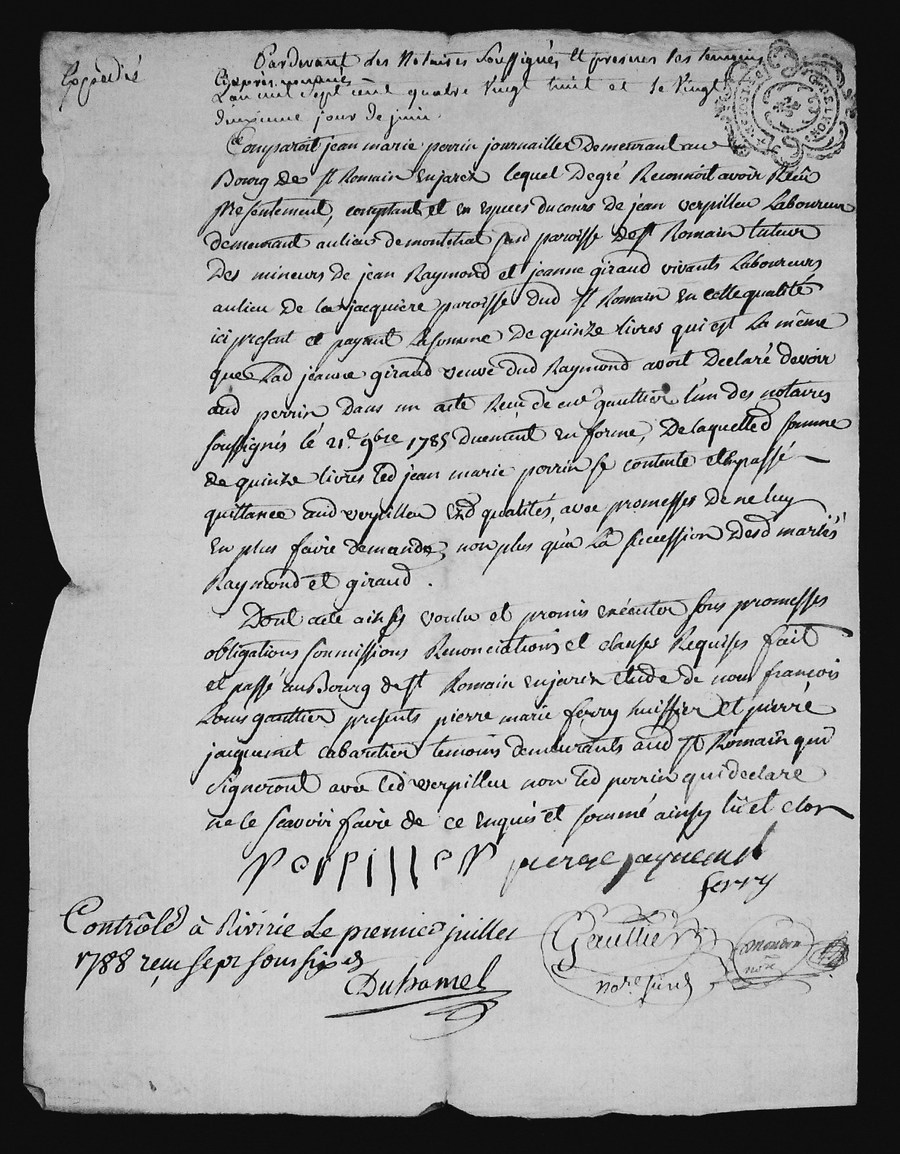 Expédié
Pardevant des Notaires Soussignés Et presens les temoins
Cyaprès nommés
L'an mil sept cent quatre vingt huit et le vingt
deuxieme jour de juin
Comparoit jean marie perrin journaillier demeurant au
Bourg de St Romain enjarez lequel degré Reconnoit avoir Reçu
presentement, comptant et en especes du cours de jean verpilleu Laboureur
demeurant au lieu de montchal sud paroisse de St Romain tuteur
Des mineurs de jean Raymond et jeanne giraud vivants Laboureurs
au lieu de la jacquière paroisse dud St Romain en cette qualité
ici present et payant La somme De quinze livres qui est La même
que Lad jeanne giraud veuve dud Raymond avoit Declaré devoir
aud perrin Dans un acte Reçu de me gaultier l'un des notaires
soussignés le 21e 9bre 1785 duement en forme, De laquelle d somme
de quinze livres led jean marie perrin se contente et passé
quittance aud verpilleu esd qualités, avec promesses De ne luy
en plus faire demande, non plus qu'a La succession Desd mariés
Raymond et giraud.
Dont acte ainsy voulu et promis executer sous promesses
obligations soumissions Renonciations et clauses Requises fait
et passé au Bourg de St Romain enjarez etude de nous françois
Louis gaultier presents pierre marie ferry huissier et pierre
jacquemet cabaretier temoins demeurants aud St Romain qui
signeront avec led verpilleu non led perrin qui declare
ne le scavoir faire de ce enquis et sommé ainsy lu et clos
Verpilleu pierre jaquemet
ferry
Contrôlé à Rivirie Le premier juillet
1788 reçu sept sous six ds
Duhamel
Gaultier
nore
nore